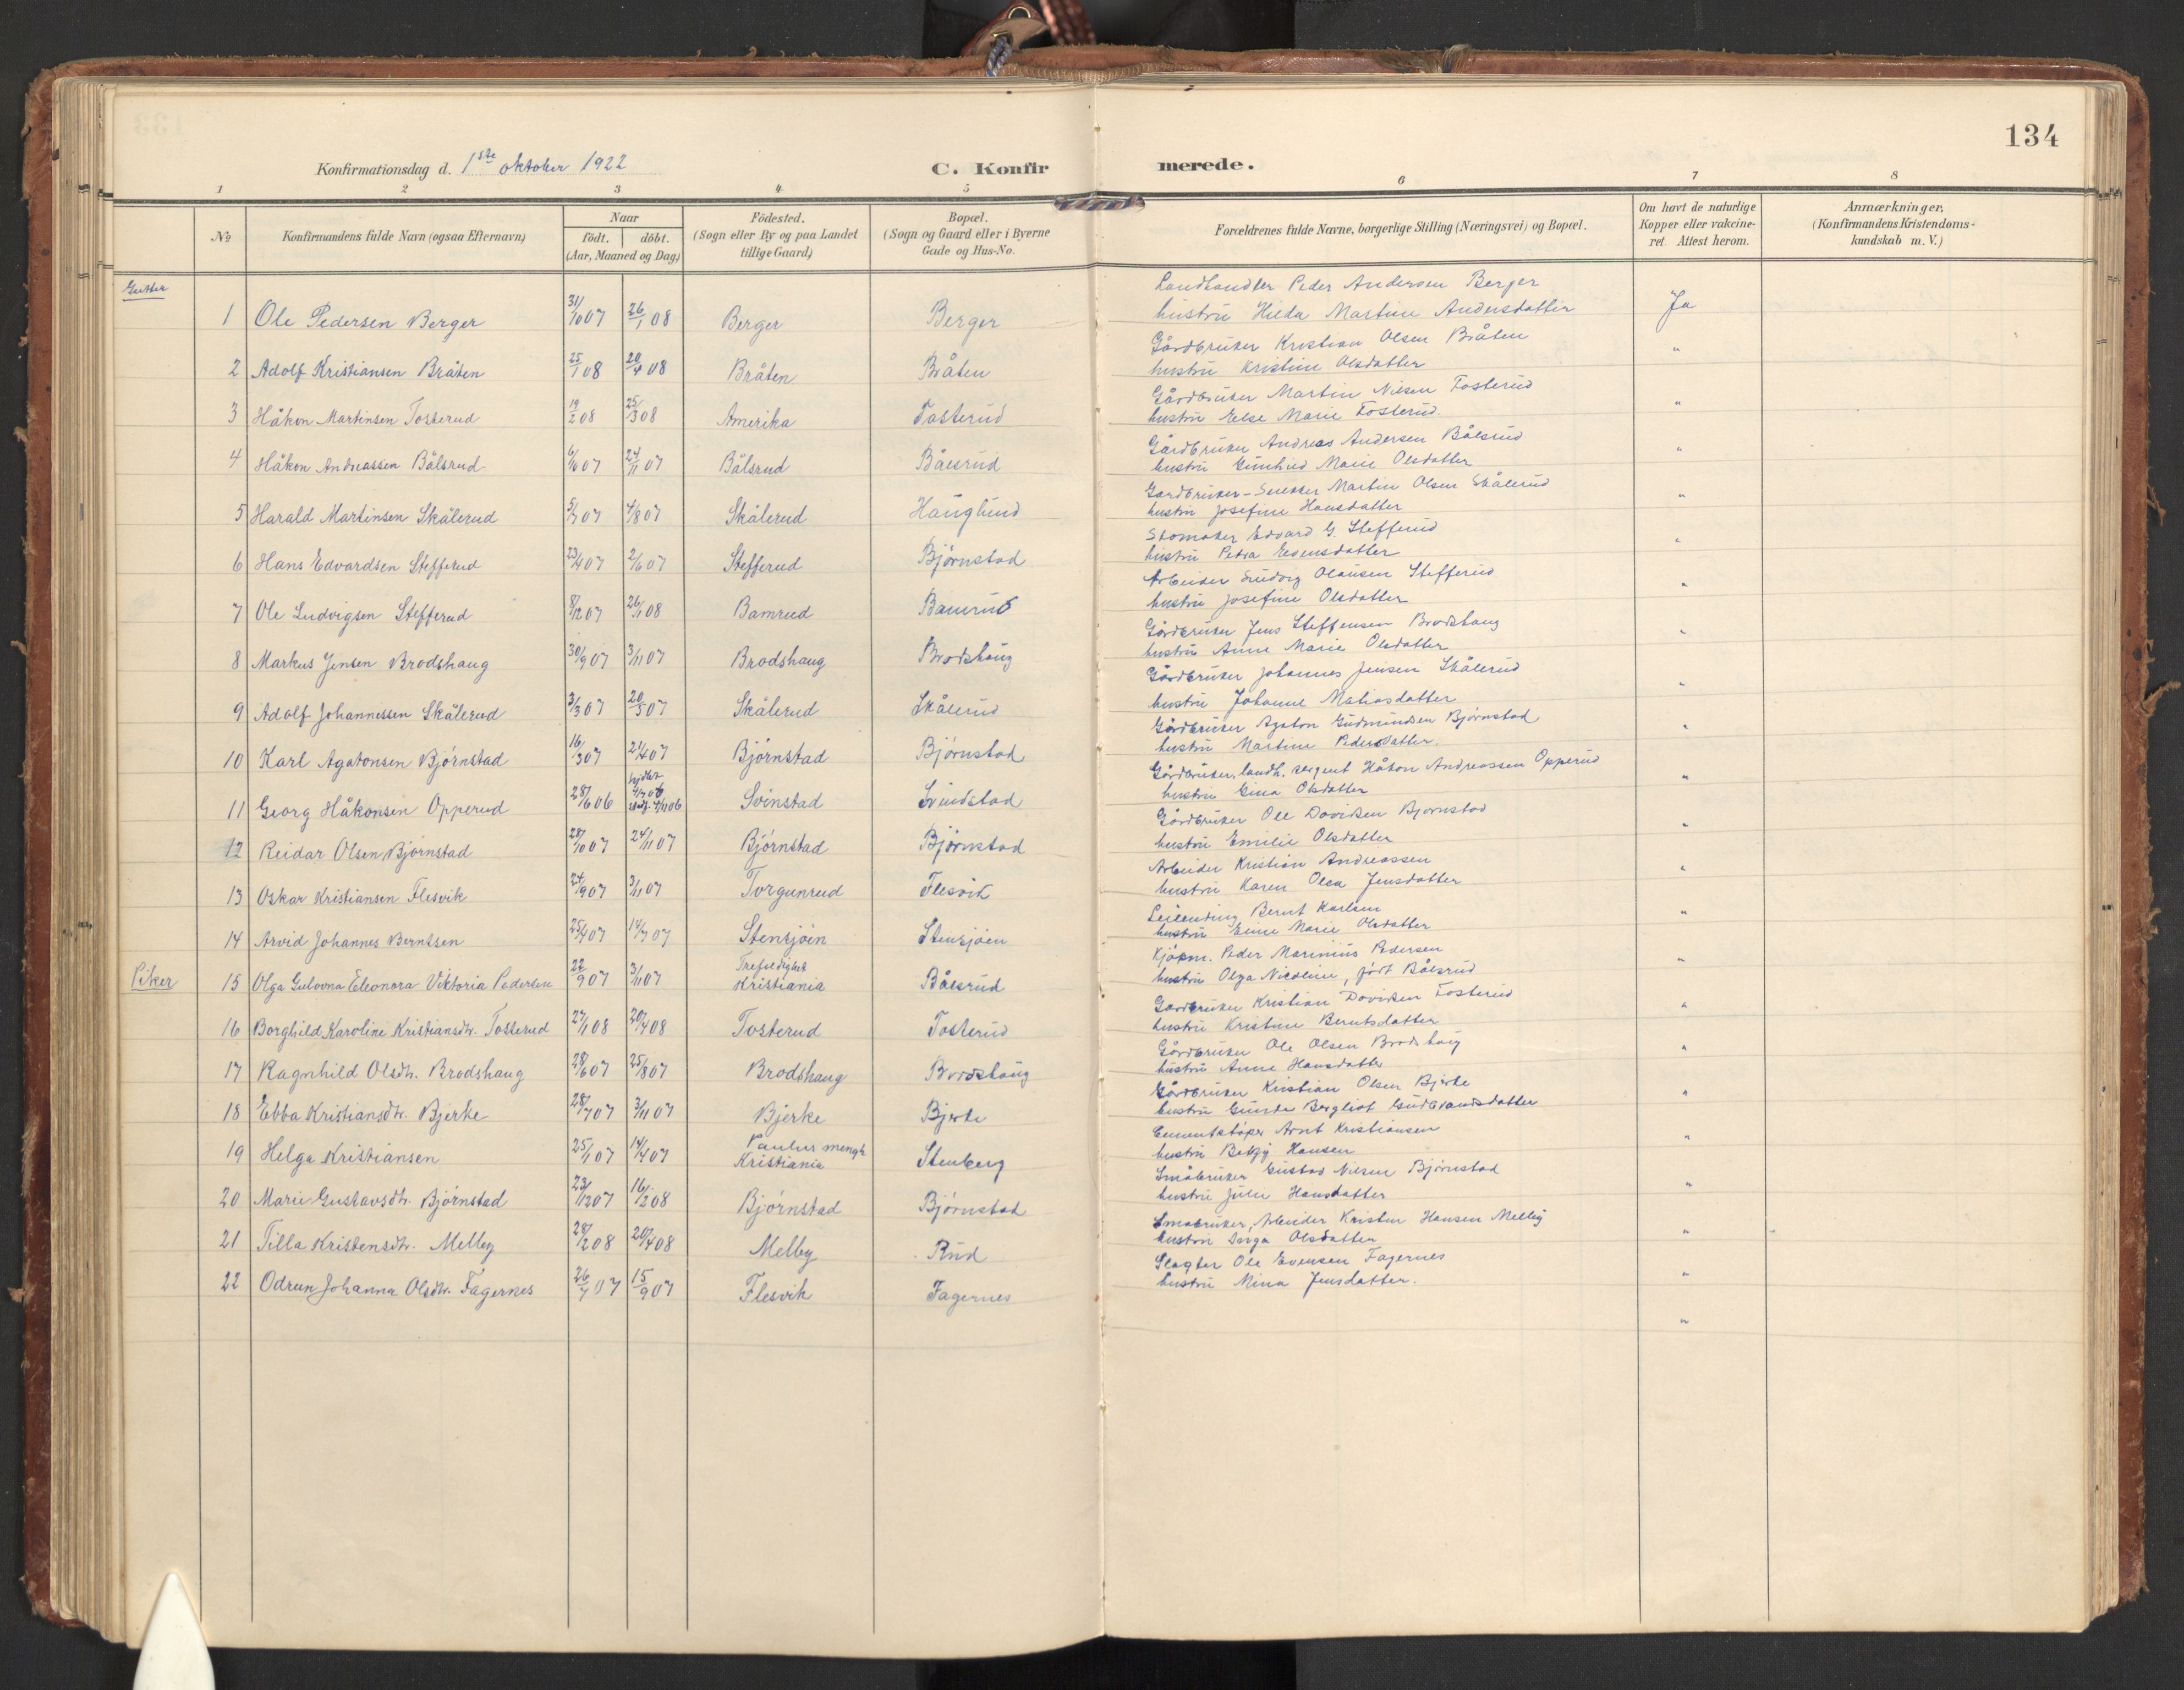 134
Konfirmationsdag d. 1ste oktober 1922
C. Konfirmerede.
1 2 3 4 5 6 7 8
No
Konfirmandens fulde Navn (ogsaa Efternavn)
Naar
födt. döbt.
(Aar, Maaned og Dag)
Födested.
(Sogn eller By og paa Landet
tillige Gaard)
Bopæl.
(Sogn og Gaard eller i Byerne
Gade og Hus-No.
Forældrenes fulde Navne, borgerlige Stilling (Næringsvei) og Bopæl.
Om havt de naturlige
Kopper eller vakcine-
ret. Attest herom.
Anmærkninger,
(Konfirmandens Kristendoms-
kundskab m. V.)
Gutter
1 Ole Pedersen Berger 31/10 07 26/1 08 Berger Berger
Landhandler Peder Andersen Berger
hustru Hilda Martine Andersdatter
Ja
2 Adolf Kristiansen Bråten 25/1 08 20/4 08 Bråten Bråten
Gårdbruker Kristian Olsen Bråten
hustru Kristine Olsdatter
"
3 Håkon Martinsen Tosterud 19/2 08 25/3 08 Amerika Tosterud
Gårdbruker Martin Nilsen Tosterud
hustru Else Marie Tosterud.
"
4 Håkon Andreassen Bålsrud 6/10 07 24/11 07 Bålsrud Bålsrud
Gårdbruker Andreas Andersen Bålsrud
hustru Gunhild Marie Olsdatter
"
5 Harald Martinsen Skålerud 5/7 07 4/8 07 Skålerud Hauglund
Gardbruker-Snekker Martin Olsen Skålerud
hustru Josefine Hansdatter
"
6 Hans Edvardsen Stefferud 23/4 07 2/6 07 Stefferud Bjørnstad
Skomaker Edvard G. Stefferud
hustru Petra Evensdatter
"
7 Ole Ludvigsen Stefferud 8/12 07 26/1 08 Bamrud Bamrud
Arbeider Ludvig Olausen Stefferud
hustru Josefine Olsdatter
"
8 Markus Jensen Brodshaug 30/9 07 3/11 07 Brodshaug Brodshaug
Gårdbruker Jens Steffensen Brodshaug
hustru Anne Marie Olsdatter
"
9 Adolf Johannessen Skålerud 3/3 07 20/5 07 Skålerud Skålerud
Gårdbruker Johannes Jensen Skålerud
hustru Johanne Matiasdatter
"
10 Karl Agatonsen Bjørnstad 16/3 07 21/4 07 Bjørnstad Bjørnstad
Gårdbruker Agaton Gudmundsen Bjørnstad
hustru Martine Pedersdatter.
"
11 Georg Håkonsen Opperud 28/6 06 hjdbt Svinstad Svindstad
Gårdbruker, landh. sergent Håkon Andreassen Opperud
hustru Gina Olsdatter
"
12 Reidar Olsen Bjørnstad 28/10 07 24/11 07 Bjørnstad Bjørnstad
Gårdbruker Ole Davidsen Bjørnstad
hustru Emilie Olsdatter
"
13 Oskar Kristiansen Flesvik 24/9 07 3/11 07 Torgunrud Flesvik
Arbeider Kristian Andreassen
hustru Karen Olea Jensdatter
"
14 Arvid Johannes Berntsen 25/4 07 14/7 07 Stensjøen Stensjøen
Leilending Bernt Karlsen
hustru Emme Marie Olsdatter
"
Piker
15 Olga Gulovna Eleonora Viktoria Pedersen 22/9 07 3/11 07 Trefoldighet Kristiania Bålsrud
Kjøpm. Peder Marinius Pedersen
hustru Olga Nicoline, født Bålsrud
"
16 Borghild Karoline Kristiansdtr. Tosterud 27/1 08 20/4 08 Tosterud Tosterud
Gardbruker Kristian Davidsen Tosterud
hustru Kristine Berntsdatter
"
17 Ragnhild Olsdtr. Brodshaug 28/6 07 25/8 07 Brodshaug Brodshaug
Gårdbruker Ole Olsen Brodshaug
hustru Anne Hansdatter
"
18 Ebba Kristiansdtr. Bjerke 28/7 07 3/11 07 Bjerke Bjerke
Gårdbruker Kristian Olsen Bjerke
hustru Gunda Bergliot Gudbrandsdatter
"
19 Helga Kristiansen 25/1 07 14/4 07 Paulus mengh. Kristiania Stenberg
Cementstøper Arnt Kristiansen
hustru Betzy Hansen
"
20 Marie Gustavsdtr. Bjørnstad 23/12 07 16/2 08 Bjørnstad Bjørnstad
Småbruker Gustav Nilsen Bjørnstad
hustru Julie Hansdatter
"
21 Tilla Kristensdtr. Melby 28/2 08 20/4 08 Melby Rud
Småbruker, Arbeider Kristen Hansen Melby
hustru Olsdatter
"
22 Odrun Johanna Olsdtr. Fagernes 26/7 07 15/9 07 Flesvik Fagernes
Slagter Ole Evensen Fagernes
hustru Mina Jensdatter.
"